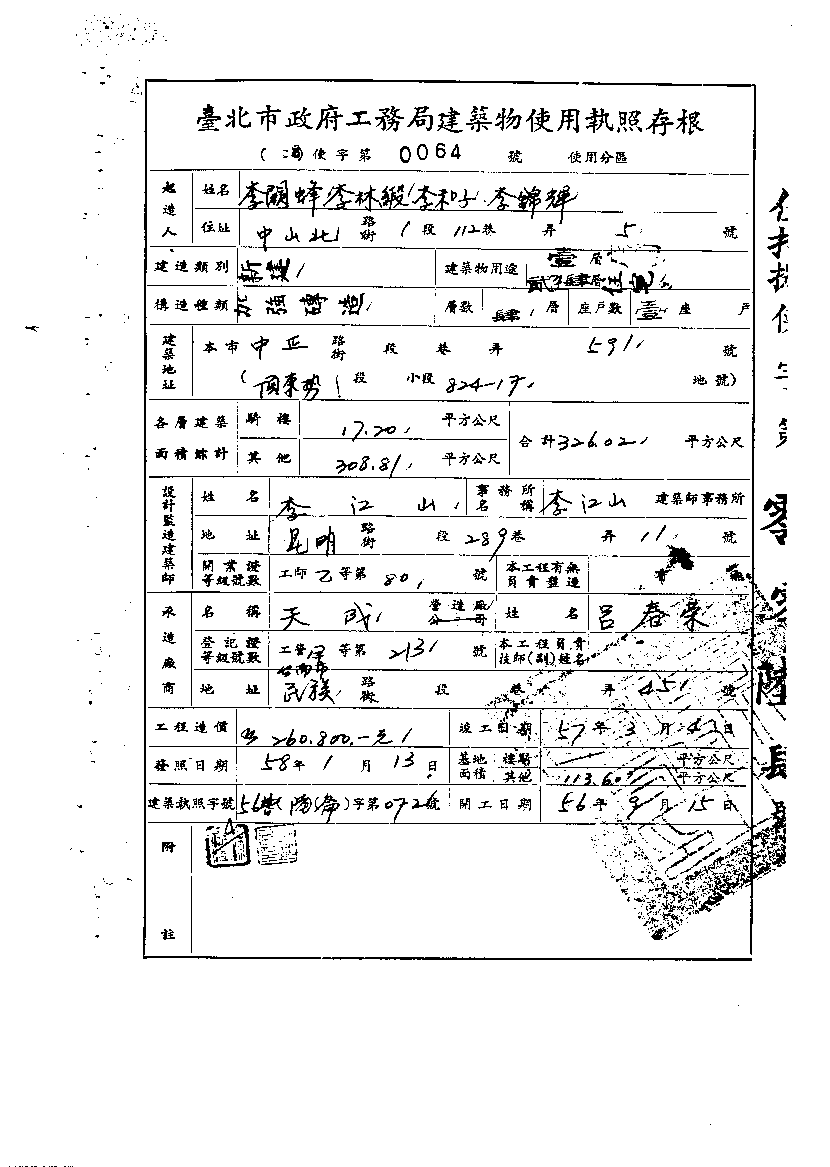 臺北市政府工務局建築物使用執照存根
使字第 0064 號 使用分區
起造人 姓名 李闕蜂 李林緞 李和子 李錦輝
住址 中山北 路街 1 段 112 巷 弄 5 號
建造類別 新建 建築物用途 壹層 貳至肆層住宅
構造種類 加強磚造 層數 肆 層 座戶數 壹 座 戶
建築地址 本市 中正 路街 段 巷 弄 591 號
( 頂東勢 段 小段 824-17 地號)
各層建築面積綜計 騎樓 17.20 平方公尺 合計 326.02 平方公尺
其他 308.81 平方公尺
設計監造建築師 姓名 李江山 事務所名稱 李江山 建築師事務所
地址 昆明 路街 段 289 巷 弄 11 號
開業證等級號數 工師乙等第 80 號 本工程有無負責監造 有 無
承造廠商 名稱 天成 營造廠 公司 姓名 呂春榮
登記證等級號數 工營 等第 2131 號 本工程負責技師(副)姓名
地址 台南市 民族 路街 段 巷 弄 451 號
工程造價 260.800.-元 竣工日期 57 年 3 月 4 日
發照日期 58 年 1 月 13 日 基地面積 騎樓 平方公尺
其他 113.60 平方公尺
建築執照字號 56 字第 072 號 開工日期 56 年 9 月 15 日
附註
零零陸肆號